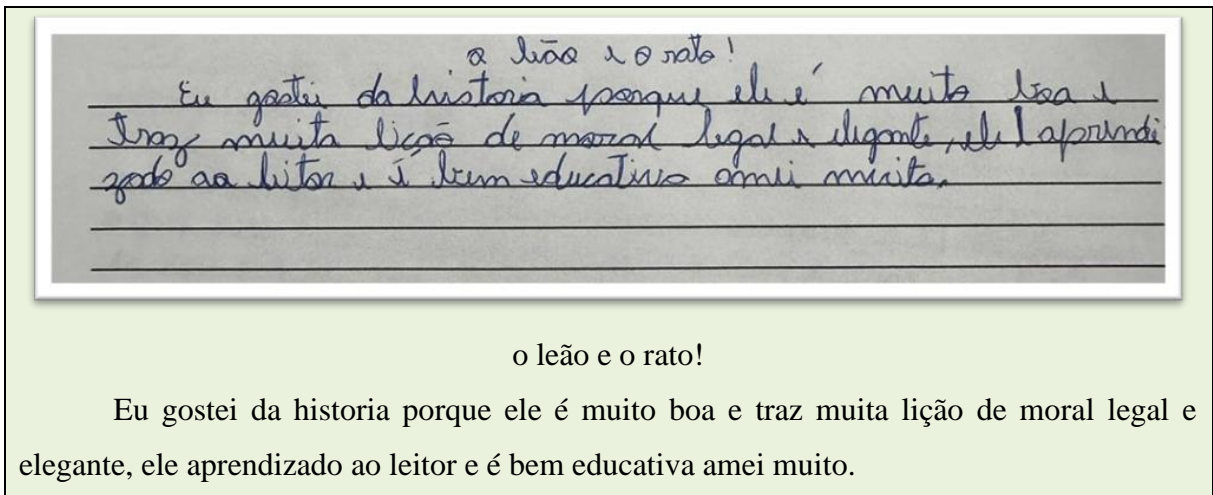 o leão e o rato!
Eu gostei da historia porque ele é muito boa e
traz muita licão de moral legal e elegante, ele aprendi
zado ao leitor e é bem educativo amei muito.
o leão e o rato!
Eu gostei da historia porque ele é muito boa e traz muita lição de moral legal e
elegante, ele aprendizado ao leitor e é bem educativa amei muito.